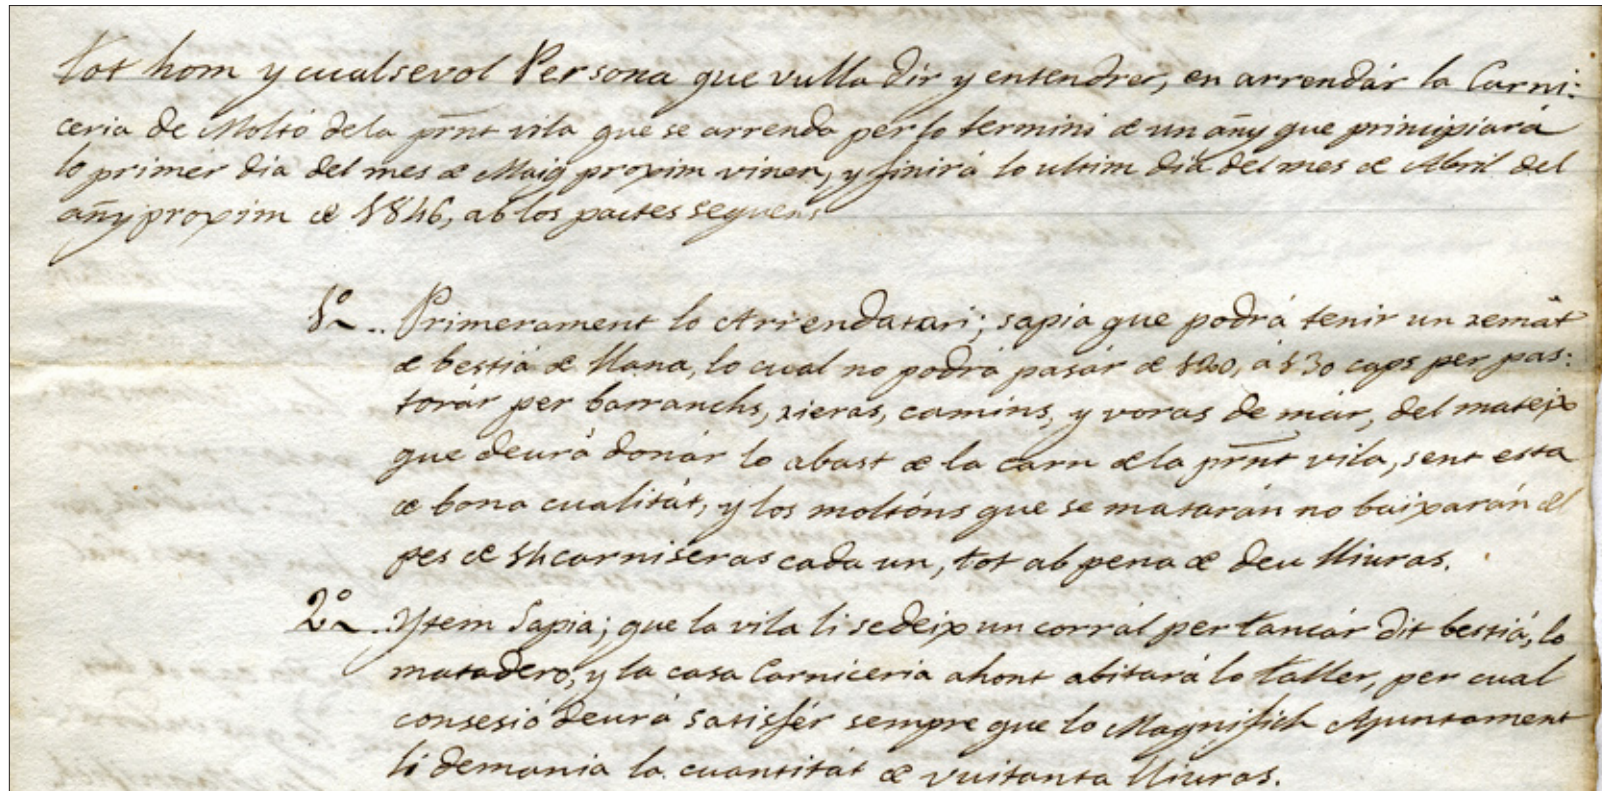 Tot hom y cualsevol Persona que vulla dir y entendrer, en arrendár la Carni:
ceria de Moltó dela pr̄nt vila que se arrenda per lo termini de un añy que principiará
lo primér dia del mes de Maig proxim vinen, y finirá lo ultim dia del mes de Abril del
añy proxim de 1846, ab los pactes seguens
1º.. Primerament lo Arrendatari; sapia que podrá tenir un remát
de bestiá de llana, lo cual no podrá pasár de 120, á 130 caps per pas:
torár per barranchs, rieras, camins, y voras de már, del mateix
que deurá donár lo abast de la carn dela pr̄nt vila, sent esta
de bona cualitát, y los moltóns que se matarán no baixarán del
pes de 14 carniseras cada un, tot ab pena de deu lliuras.
2º.. Ytem Sapia; que la vila li sedeix un corrál per tancár dit bestiá, lo
matadero, y la casa Carniceria ahont abitará lo taller, per cual
consesió deurá satisfér sempre que lo Magnifich Ajuntament
li demania la cuantitát de vuitanta lliuras.